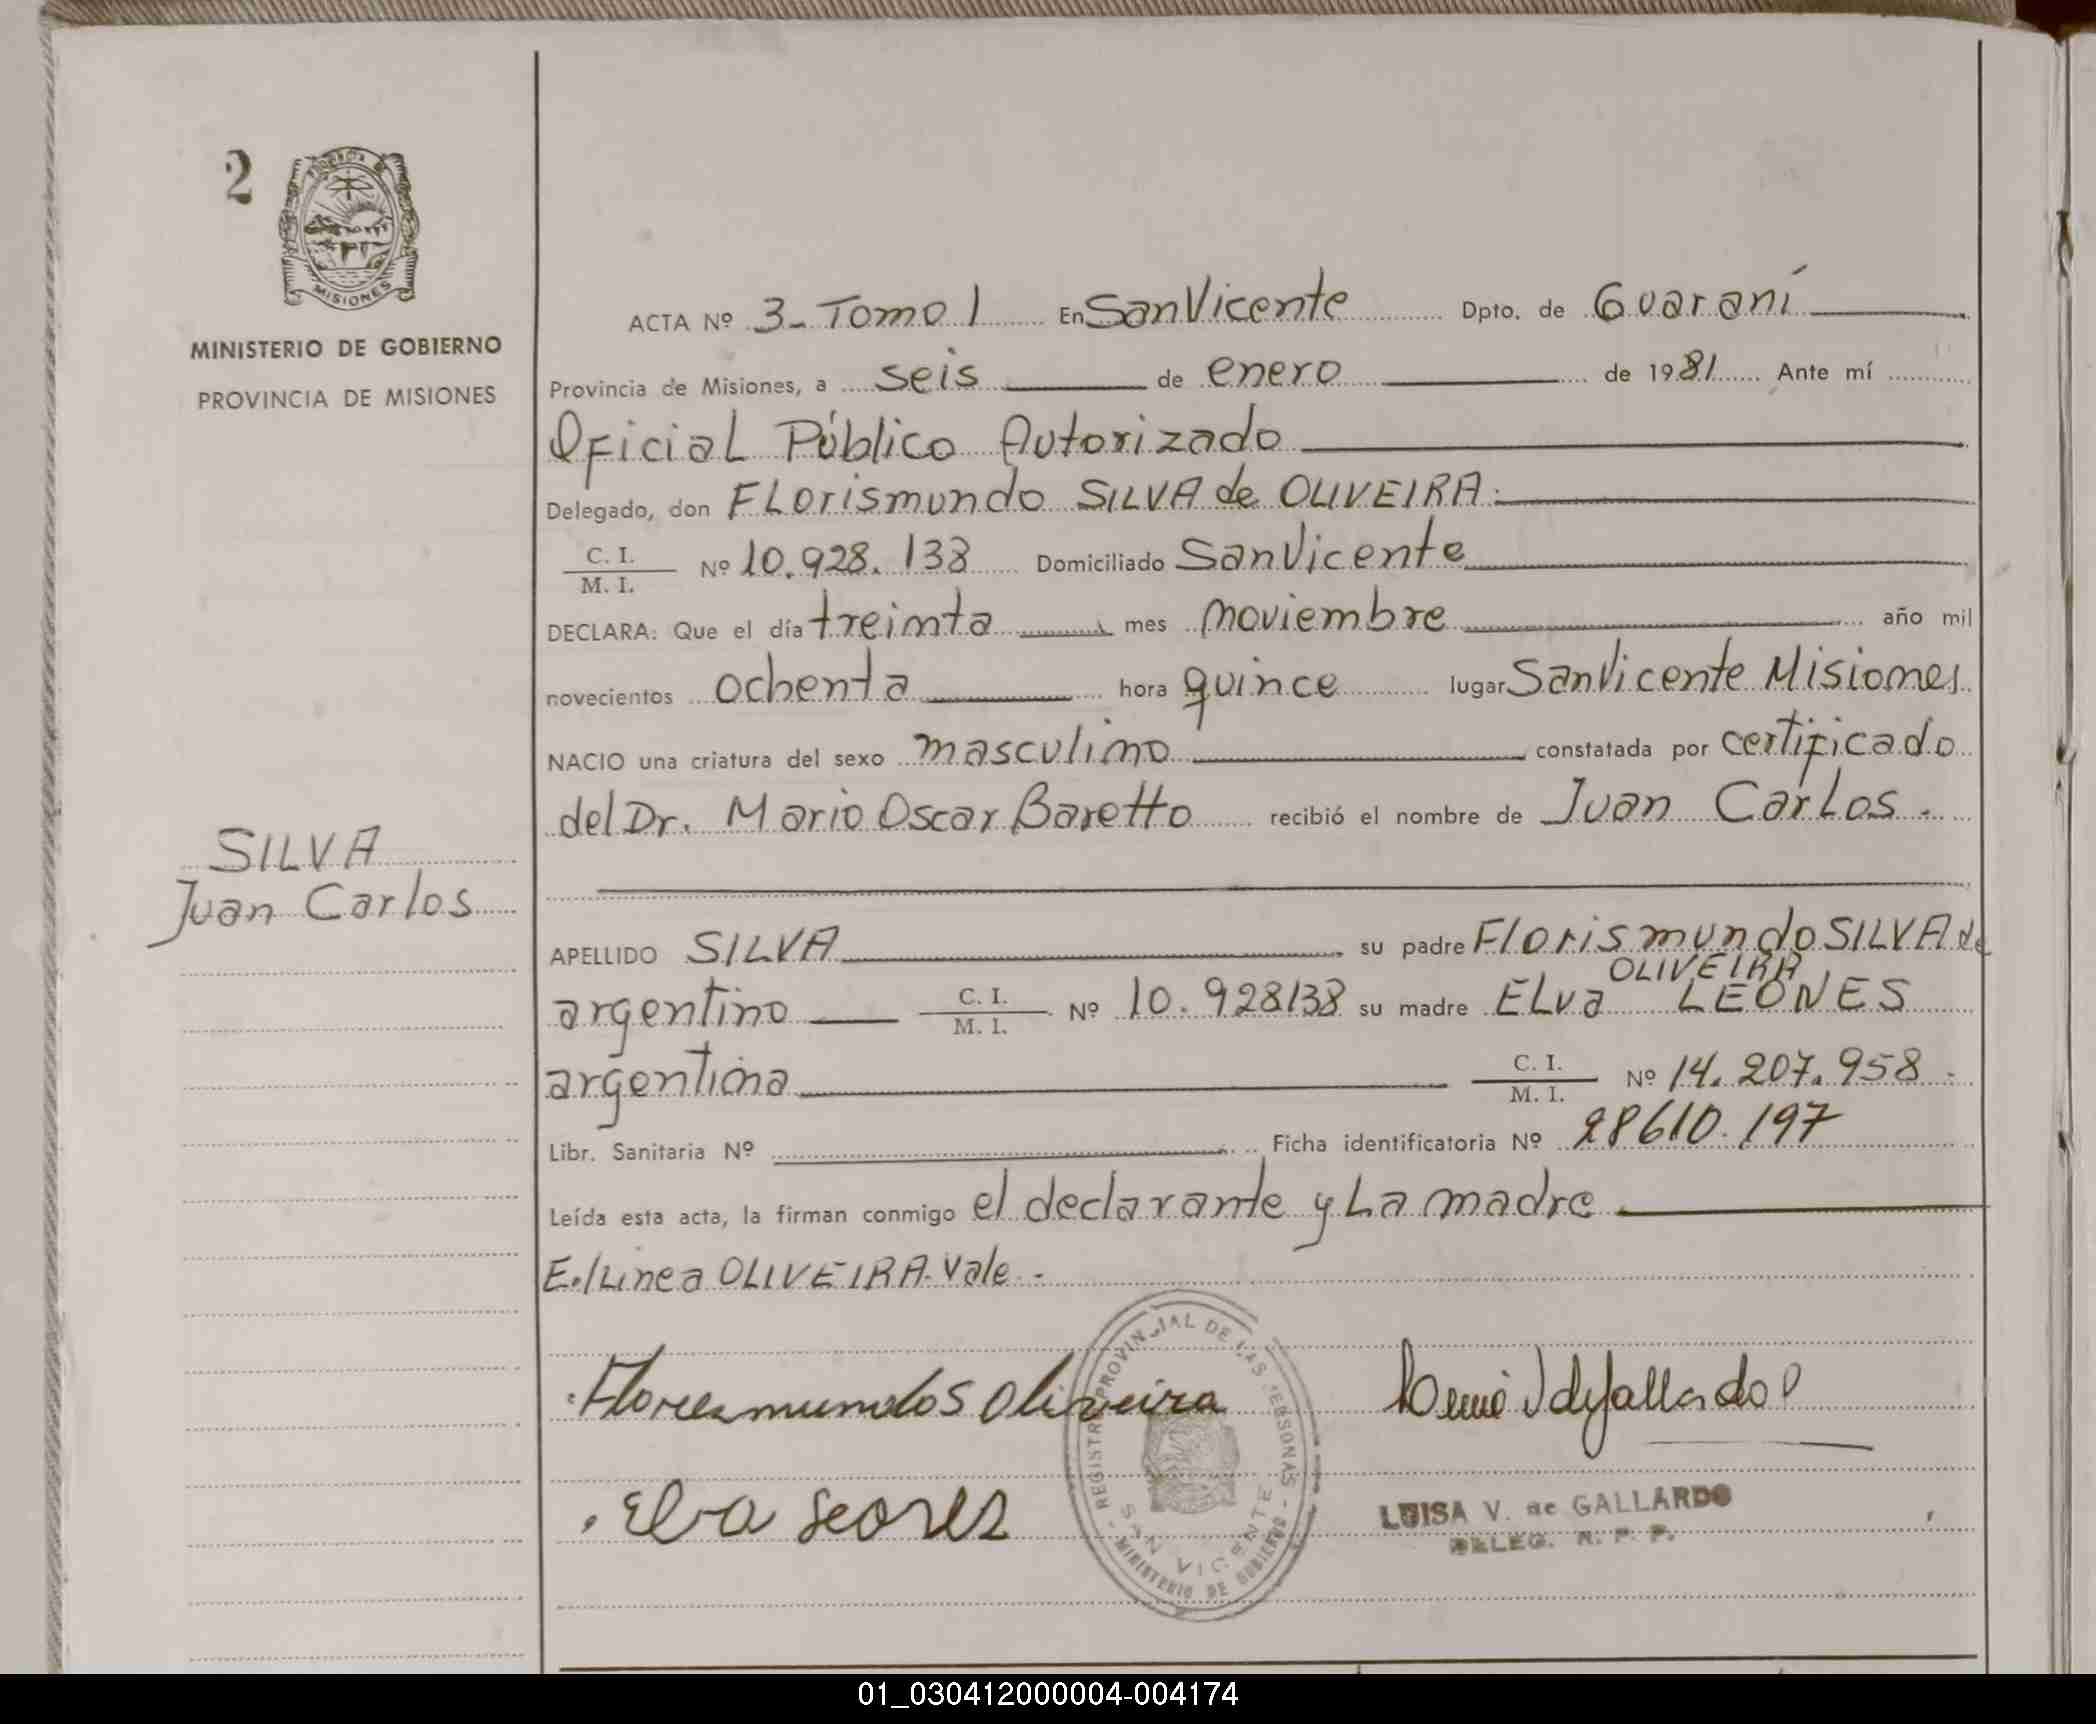 2
PROVINCIA DE
MISIONES
MINISTERIO DE GOBIERNO
PROVINCIA DE MISIONES
SILVA
Juan Carlos
ACTA Nº 3-Tomo 1 En San Vicente Dpto. de Guaraní
Provincia de Misiones, a seis de enero de 1981 Ante mí
Oficial Público Autorizado
Delegado, don Florismundo SILVA de OLIVEIRA.
C. I.
M. I. Nº 10.928.138 Domiciliado San Vicente
DECLARA: Que el día treinta mes noviembre año mil
novecientos ochenta hora quince lugar San Vicente Misiones
NACIO una criatura del sexo masculino constatada por certificado
del Dr. Mario Oscar Baretto recibió el nombre de Juan Carlos.
APELLIDO SILVA su padre Florismundo SILVA de
OLIVEIRA
argentino C. I. M. I. Nº 10.928138 su madre Elva LEONES
argentina C. I. M. I. Nº 14.207.958
Libr. Sanitaria Nº Ficha identificatoria Nº 28610.197
Leída esta acta, la firman conmigo el declarante y La madre
E./Linea OLIVEIRA. Vale.
Oliveira
Elva
REGISTRO PROVINCIAL DE LAS PERSONAS
SAN VICENTE
MINISTERIO DE GOBIERNO
LUISA V. de GALLARDO
DELEG. R. P. P.
01_030412000004-004174